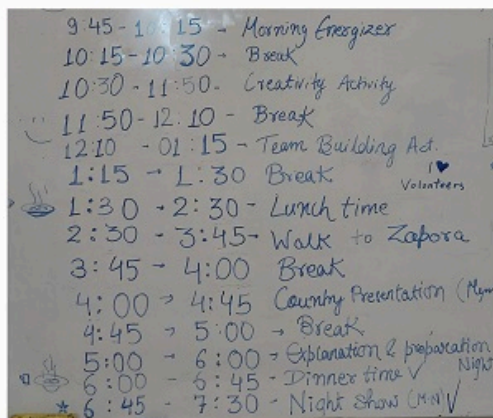 9:45 - 10:15 - Morning Energizer
10:15 - 10:30 - Break
10:30 - 11:50 - Creativity Activity
11:50 - 12:10 - Break
12:10 - 01:15 - Team Building Act.
1:15 - 1:30 Break
I ♥
Volunteers
1:30 - 2:30 - Lunch time
2:30 - 3:45 - Walk to Zapora
3:45 - 4:00 Break
4:00 → 4:45 Country Presentation
4:45 → 5:00 → Break
5:00 - 6:00 - Explanation & preparation
Night
6:00 - 6:45 - Dinner time ✓
6:45 - 7:30 - Night Show (M·N) ✓